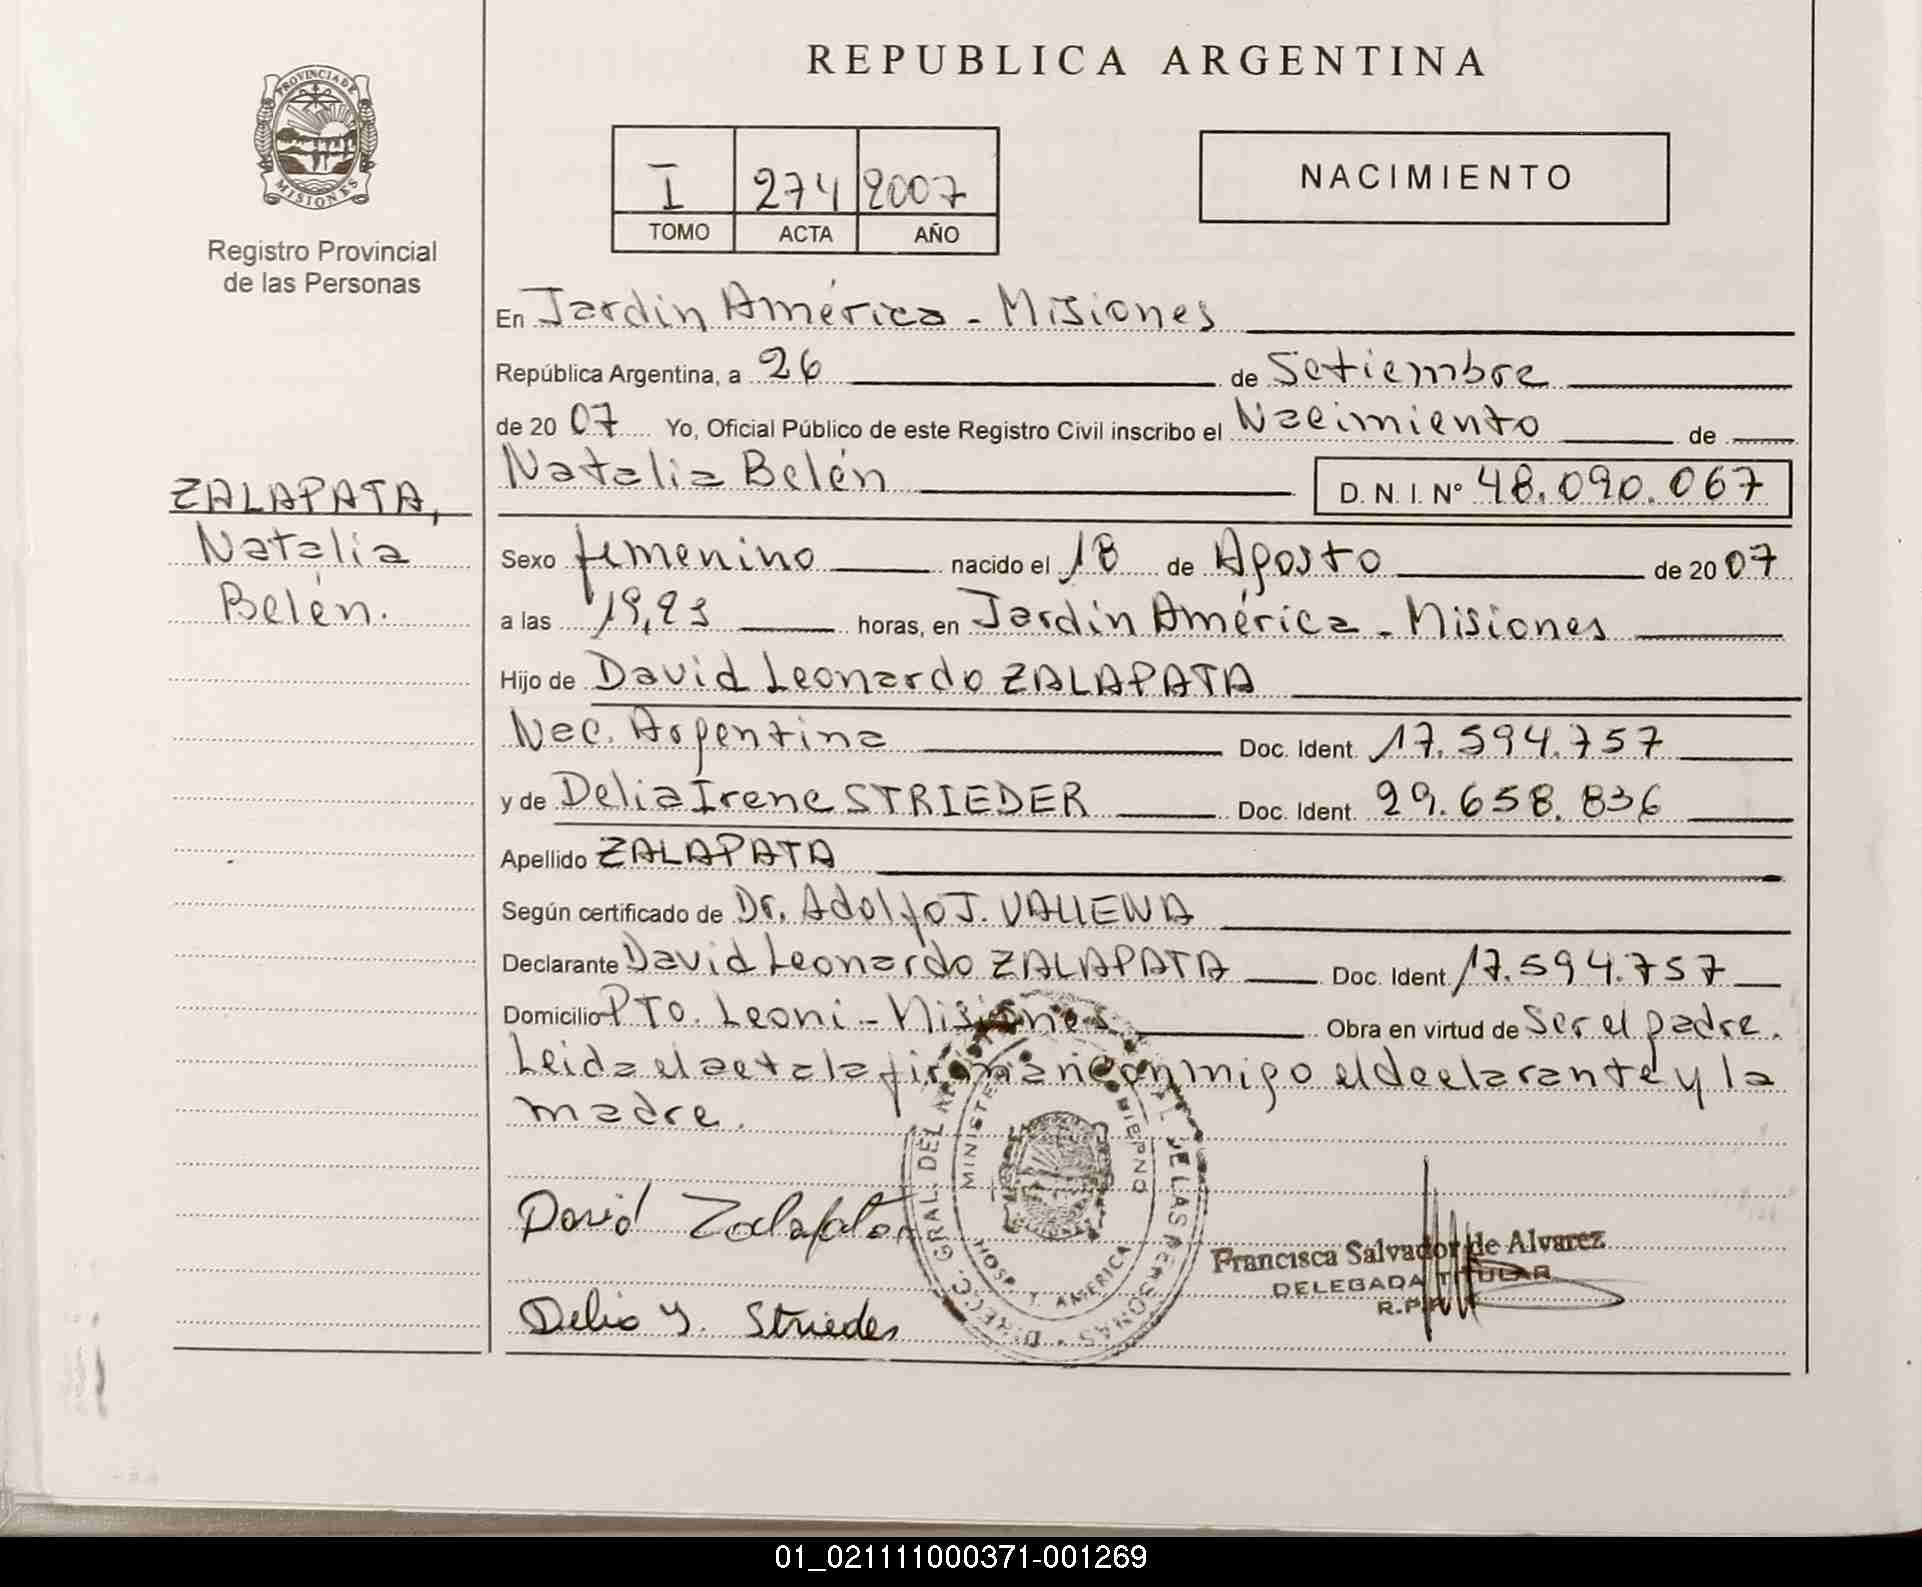 REPUBLICA ARGENTINA
PROVINCIA DE
MISIONES
Registro Provincial
de las Personas
I 274 2007
TOMO ACTA AÑO
NACIMIENTO
En Jardín América - Misiones
República Argentina, a 26 de Setiembre
de 2007 Yo, Oficial Público de este Registro Civil inscribo el Nacimiento de
Natalia Belén D. N. I. Nº 48.090.067
ZALAPATA,
Natalia
Belén.
Sexo femenino nacido el 18 de Agosto de 2007
a las 19,23 horas, en Jardín América - Misiones
Hijo de David Leonardo ZALAPATA
Nac. Argentina Doc. Ident. 17.594.757
y de Delia Irene STRIEDER Doc. Ident. 29.658.836
Apellido ZALAPATA
Según certificado de Dr. Adolfo J.
Declarante David Leonardo ZALAPATA Doc. Ident. 17.594.757
Domicilio PTO. Leoni - Misiones Obra en virtud de Ser el padre.
Leida el acta la firman conmigo el declarante y la
madre.
David Zalapata
Delia Y. Strieder
DIRECC. GRAL. DEL DE LAS PERSONAS
HOSP. J. AMERICA
Francisca Salvador de Alvarez
DELEGADA TITULAR
R.P.P.
01_021111000371-001269